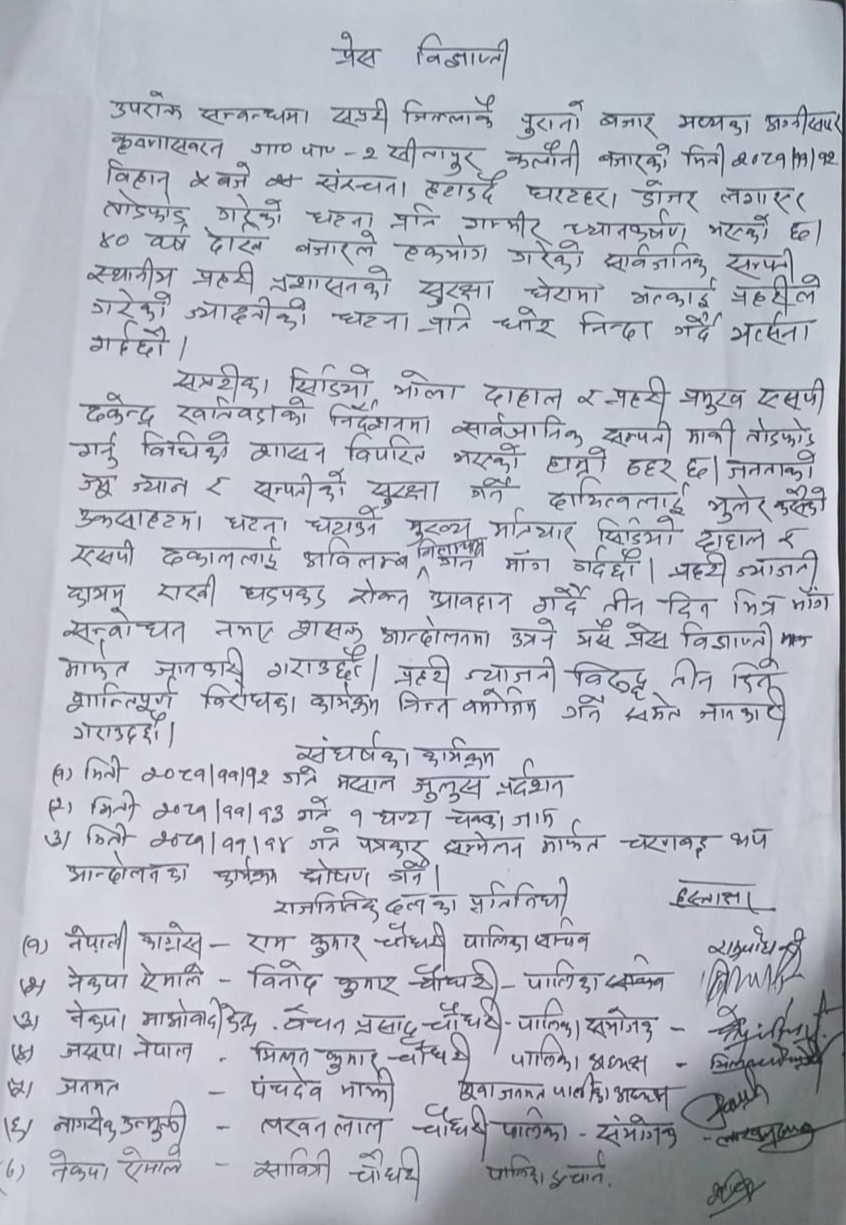 प्रेस विज्ञप्ती
उपरोक्त सम्बन्धमा सप्तरी जिल्लाकै पुरानो बजार मध्यका
कृष्णासवरन गा०पा०-२ कलौनी बजारको मिती २०८१/११/१२
विहान ५ बजे संरचना हटाउदै घरटहरा डोजर लगाएर
तोडफोड गरेको घटना प्रति गम्भीर ध्यानकर्षण भएको छ।
४० वर्ष देखि बजारले हकभोग गरेको सार्वजनिक सम्पत्ती
स्थानीय प्रहरी प्रशासनको सुरक्षा घेरामा भत्काई प्रहरीले
गरेको ज्यादतीको घटना प्रति घोर निन्दा गर्दै भर्त्सना
गर्दछौ।
सप्तरीका सिडियो भोला दाहाल र प्रहरी प्रमुख एसपी
ढकेन्द्र खतिवडाको निर्देशनमा सार्वजानिक सम्पत्ती माथी तोडफोड
गर्नु विधिको शासन विपरित भएको हाम्रो ठहर छ। जनताको
ज्यू ज्यान र सम्पतीको सुरक्षा गर्ने दायित्वलाई भुलेर कसैको
उकसाहटमा घटना घटाउने मुख्य मतियार सिडियो दाहाल र
एसपी ढकाललाई अविलम्ब निलम्बन गर्न माँग गर्दछौ। प्रहरी ज्यादती
कायम राखी धडपकड रोक्न आवहान गर्दै तीन दिन भित्र माँग
सम्वोधन नभए शसक्त आन्दोलनमा उत्रने प्रेस विज्ञाप्ती
मार्फत जानकारी गराउदछौ। प्रहरी ज्यादती विरुद्ध तीन दिने
शान्तिपूर्ण विरोधका कार्यक्रम निम्न वमोजिम गर्ने समेत जानकारी
गराउदछौ।
संघर्षका कार्यक्रम
(१) मिती २०८१/११/१२ गते मसाल जुलुस प्रर्दशन
(२) मिती २०८१/११/१३ गते १ घण्टा चक्का जाम
३) मिती २०८१/११/१४ गते पत्रकार सम्मेलन मार्फत चरणवद्ध थप
आन्दोलनका कार्यक्रम घोषणा गर्ने।
राजनितिक दलका प्रतिनिधी हस्ताक्षर
(१) नेपाली काग्रेस – राम कुमार चौधरी पालिका सचिव
(२) नेकपा ऐमाले – विनोद कुमार चौधरी – पालिका सचिव
३) नेकपा माओवादी केन्द्र. वेचन प्रसाद चौधरी - पालिका संयोजक -
(४) जसपा नेपाल - मिलन कुमार चौधरी पालिका अध्यक्ष -
(५) जनमत – पंचदेव माझी युवा जनमत पालीका अध्यक्ष
(६) नागरीक उन्मुक्ती – लखन लाल चौधरी पालिका - संयोजक -
(७) नेकपा ऐमाले – सावित्री चौधरी पालिका इन्चार्ज.